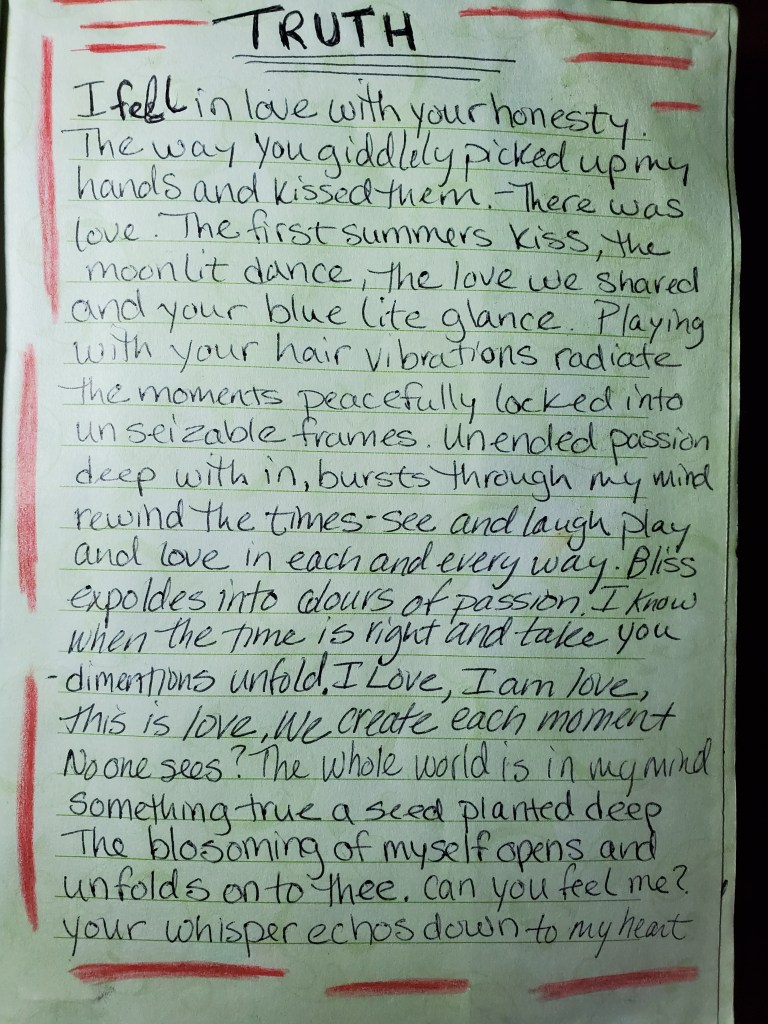 TRUTH
I fell in love with your honesty.
The way you giddlely picked up my
hands and kissed them. There was
love. The first summers kiss, the
moonlit dance, the love we shared
and your blue lite glance. Playing
with your hair vibrations radiate
the moments peacefully locked into
unseizable frames. Unended passion
deep with in, bursts through my mind
rewind the times-see and laugh play
and love in each and every way. Bliss
expoldes into colours of passion. I know
when the time is right and take you
-dimentions unfold. I Love, I am love,
this is love, We create each moment
No one sees? The whole world is in my mind
something true a seed planted deep
The blosoming of myself opens and
unfolds on to thee. Can you feel me?
your whisper echos down to my heart